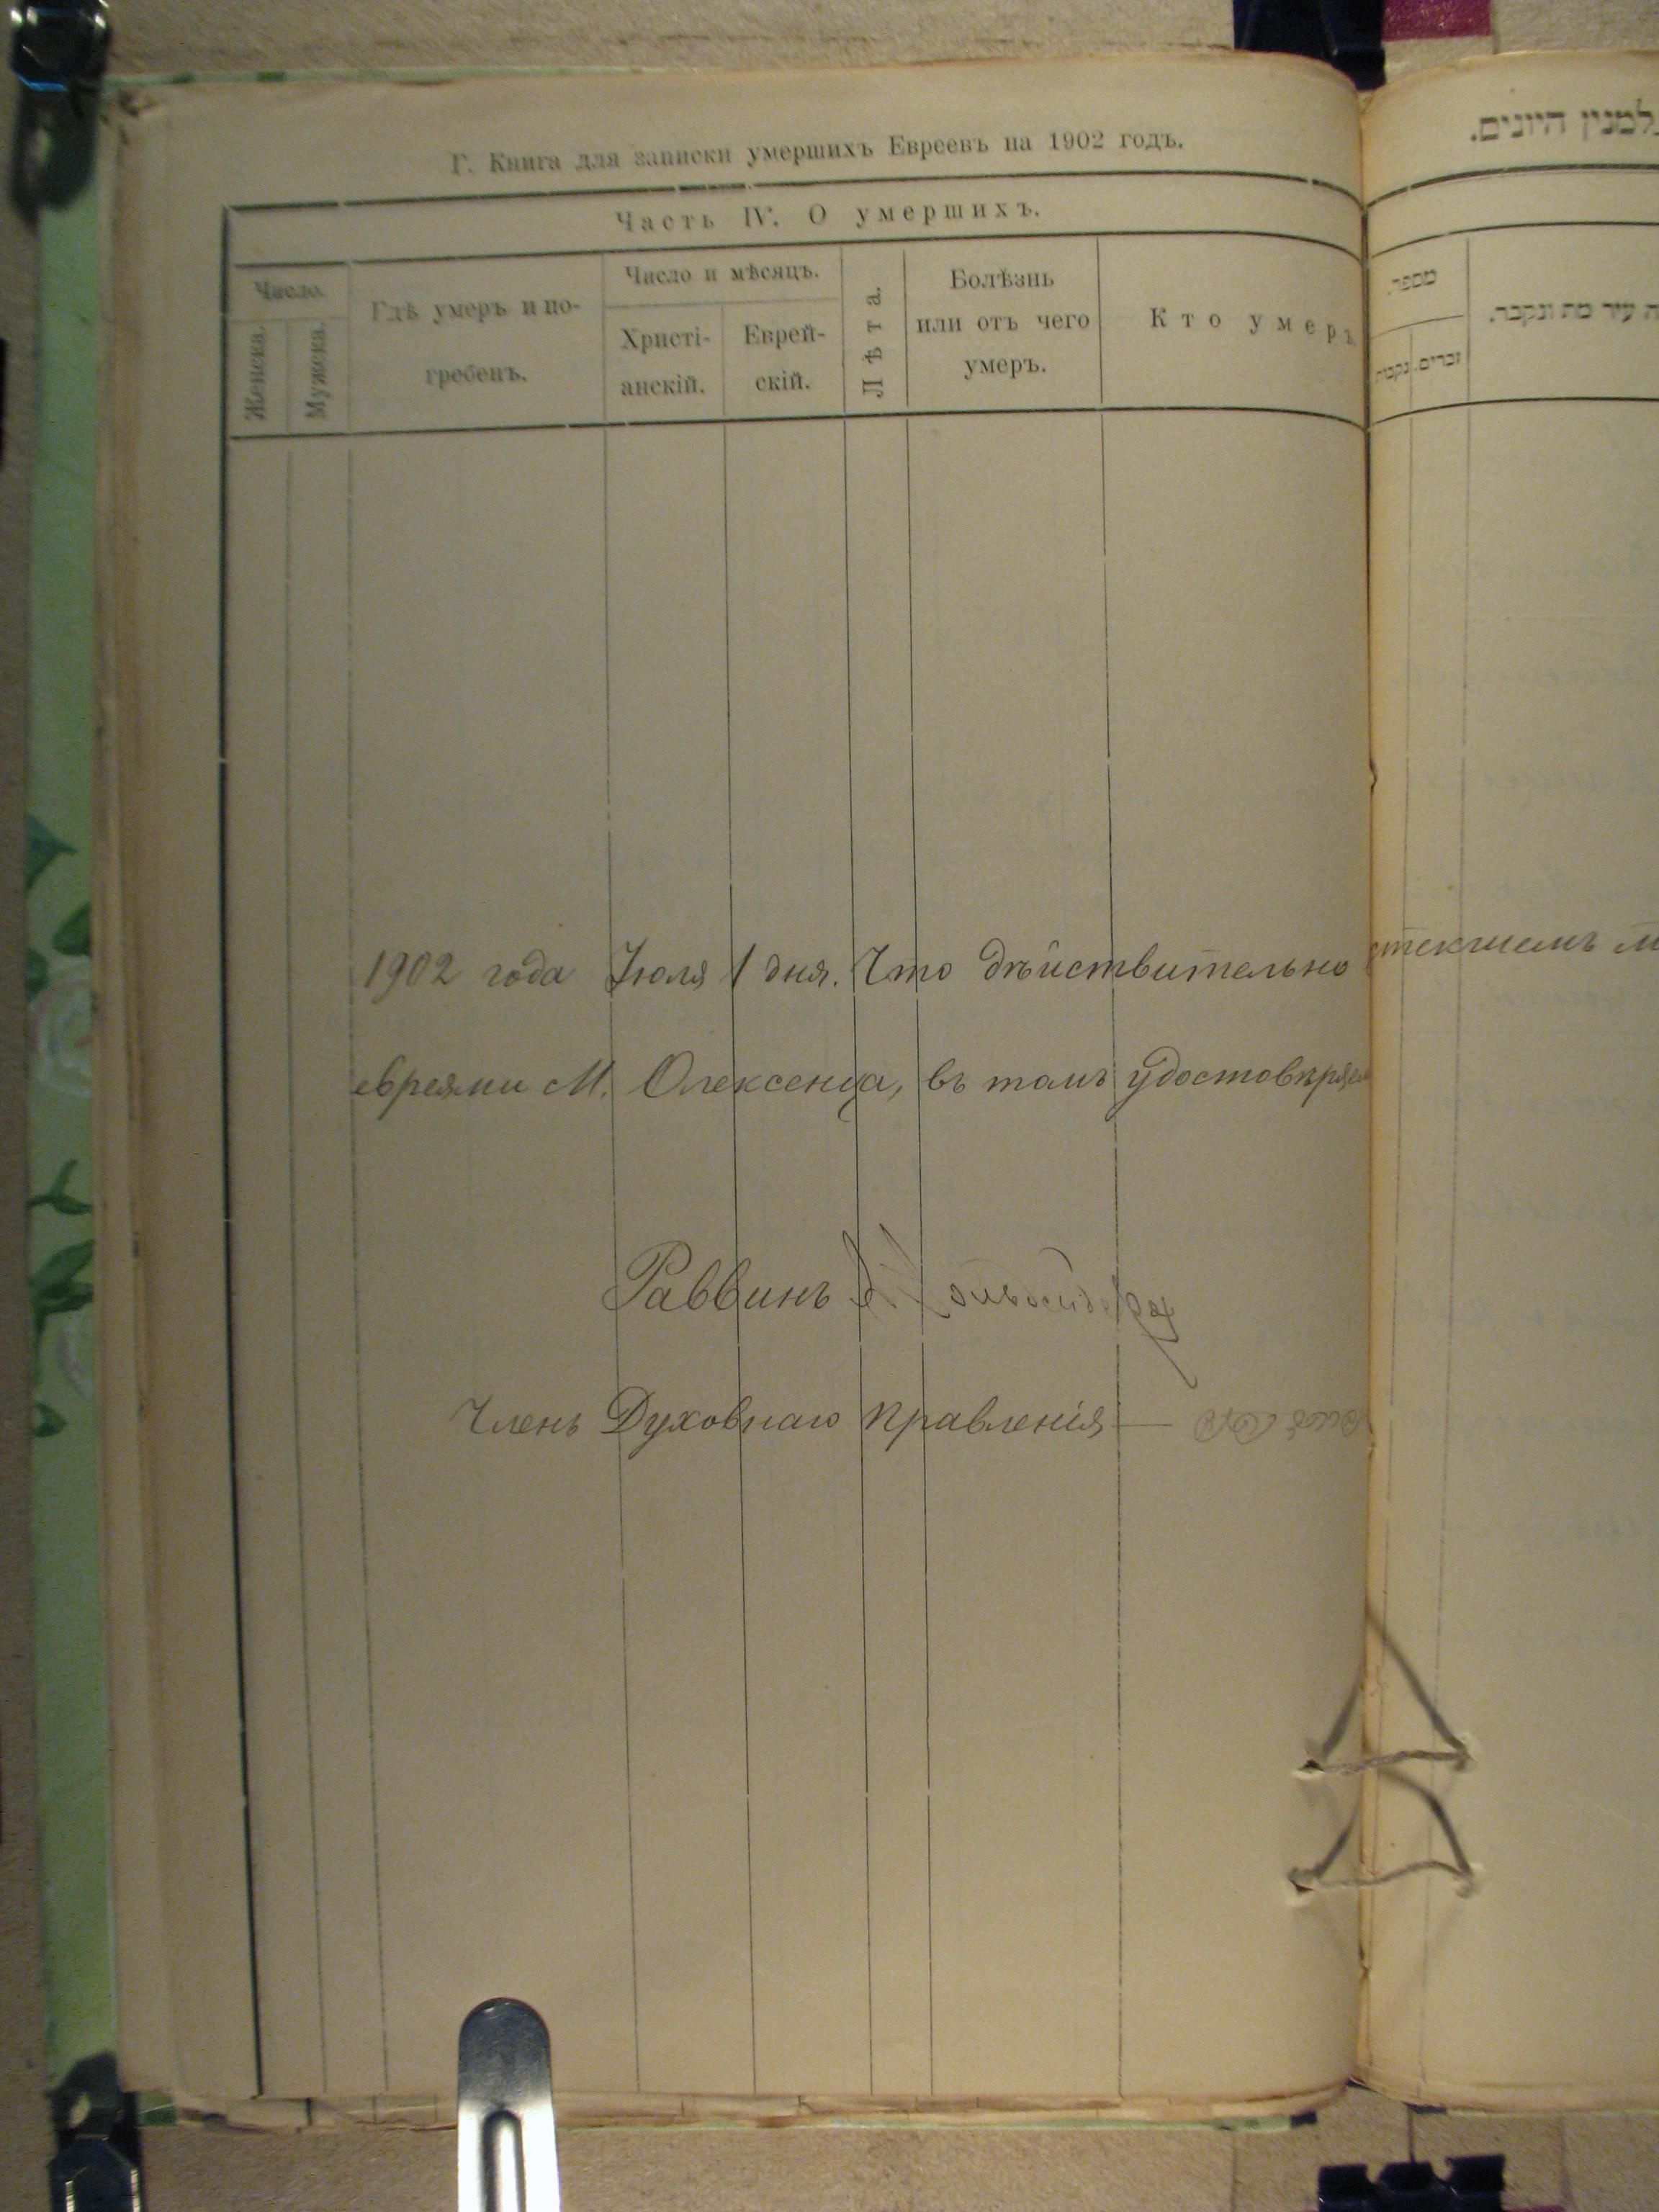 Г. Книга для записки умершихъ Евреевъ на 1902 годъ.
Часть IV. О умершихъ.
Число.
Женска.
Мужска.
Гдѣ умеръ и по-
гребенъ.
Число и мѣсяцъ.
Христі-
анскій.
Еврей-
скій.
Лѣта.
Болѣзнь
или отъ чего
умеръ.
Кто умеръ
1902 года Іюля 1 дня. Что дѣйствительно
евреями М. Олексенца, въ томъ удостовѣряем
Раввинъ
Членъ Духовнаго Правленія —
למנין היונים.
מספר.
זכרים.
נקבות
עיר מת ונקבר.
стекшемъ